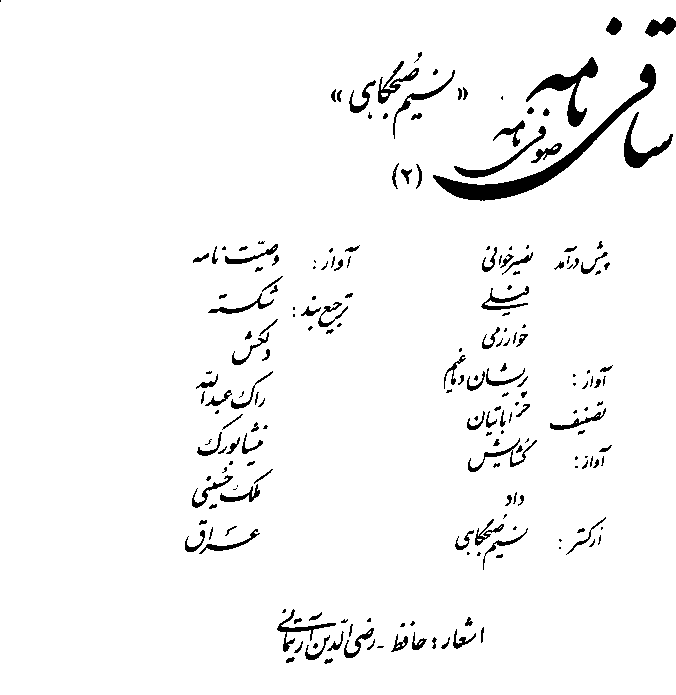 ساقی نامه
صوفی نامه
«نسیم صبحگاهی»
(۲)
پیش درآمد نصیرخوانی
فیلی
خوارزمی
آواز: پریشان دماغیم
تصنیف خراباتیان
آواز: گشایش
داد
ارکستر: نسیم صبحگاهی
آواز: وصیّت نامه
ترجیع بند: شکسته
دلکش
راک عبدالله
نیشابورک
ملک حُسینی
عراق
اشعار: حافظ - رضی الدّین آرتیمانی